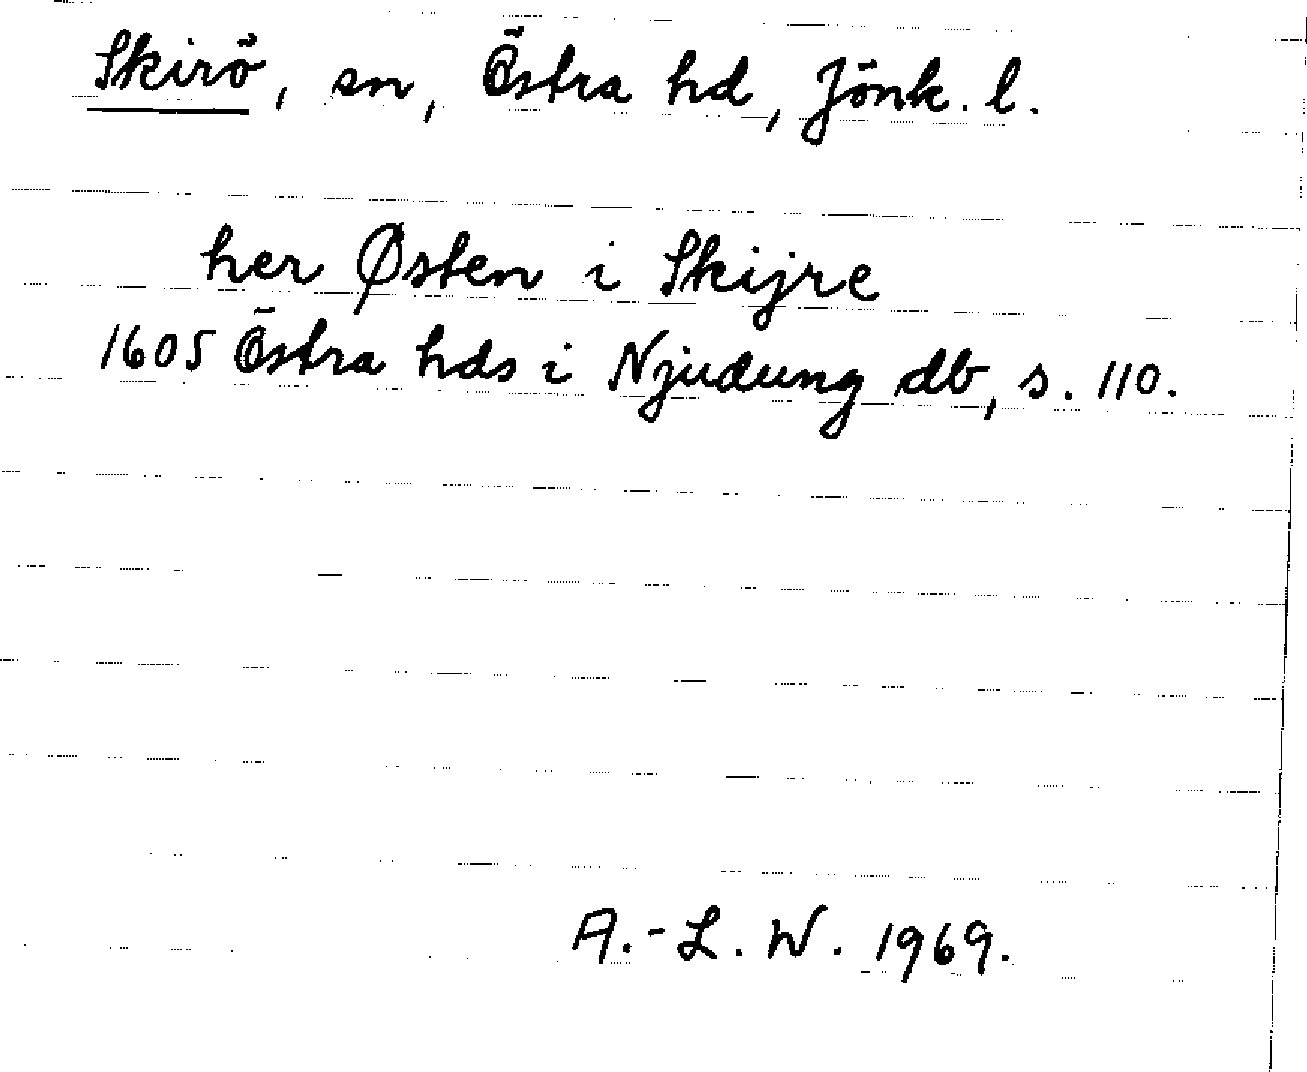 Skirö, sn, Östra hd, Jönk. l.
her Østen i Skijre
1605 Östra hds i Njudung db, s. 110.
A.-L. W. 1969.